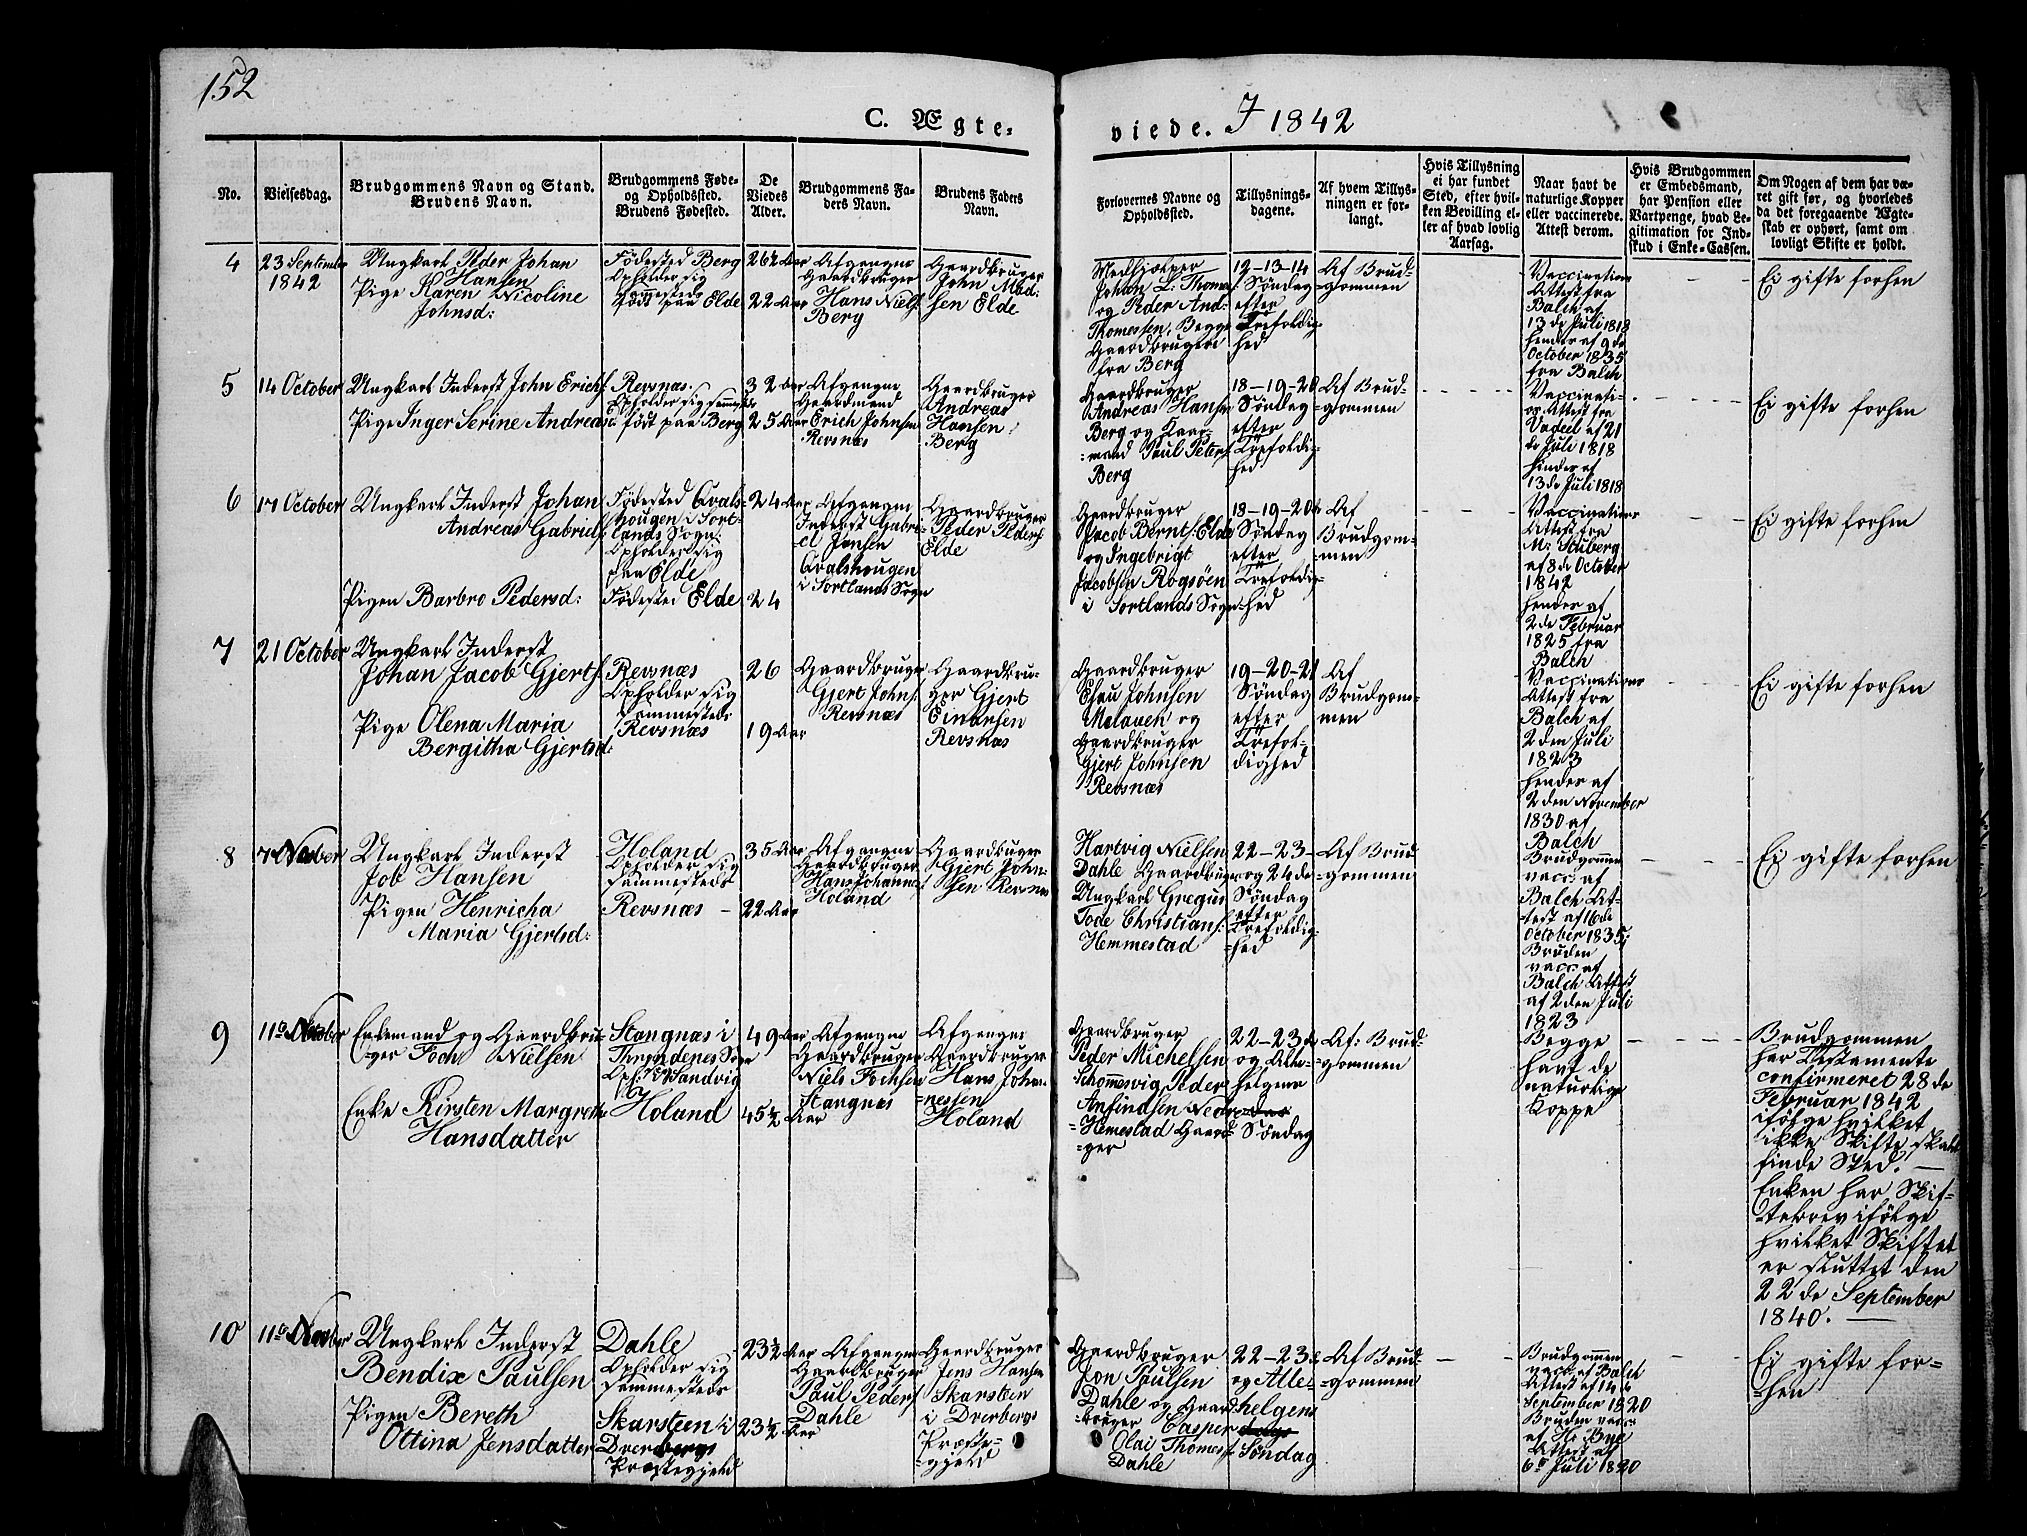 152
C. Ægte-
viede. I 1842
No.
Vielsesdag.
Brudgommens Navn og Stand.
Brudens Navn.
Brudgommens Føde-
og Opholdssted.
Brudens Fødested.
De
Viedes
Alder.
Brudgommens Fa-
ders Navn.
Brudens Faders
Navn.
Forlovernes Navne og
Opholdssted.
Tillysnings-
dagene.
Af hvem Tillys-
ningen er for-
langt.
Hvis Tillysning
ei har fundet
Sted, efter hvil-
ken Bevilling el-
ler af hvad lovlig
Aarsag.
Naar havt de
naturlige Kopper
eller vaccinerede.
Attest derom.
Hvis Brudgommen
er Embedsmand,
har Pension eller
Vartpenge, hvad Le-
gitimation for Ind-
skud i Enke-Cassen.
Om Nogen af dem har væ-
ret gift før, og hvorledes
da det foregaaende Ægte-
skab er ophørt, samt om
lovligt Skifte er holdt.
4
23 September
1842
Ungkarl Peder Johan
Hansen
Pige Karen Nicoline
Johnsd:
Fødested Berg
Opholder sig
sammesteds
født paa Elde
26½ Aar
22 Aar
Afgangne
Gaardbruger
Hans Niels.
Berg
Gaardbruger
John Mad-
sen Elde
Medhjelper
Johan L. Thomes.
og Peder And:
Thomessen, Begge
Gaardbrugere
fra Berg
12-13-14
Søndag
efter
Trefoldig-
hed
Af Brud-
gommen
Vaccinations
Attest fra
Balch af
13de Juli 1818
hendes af 9de
October 1835
fra Balch
Ei gifte forhen
5
14 October
Ungkarl Inderst John Erichs.
Pige Inger Serine Andreasd
Revsnæs.
Opholder sig sammesteds
født paa Berg
32 Aar
25 Aar
Afgangne
Gaardmand
Erich Johnsen
Revsnæs
Gaardbruger
Andreas
Hansen
Berg
Gaardbruger
Andreas Hansen
Berg og Gaard-
mand Paul Peters.
Berg
18-19-20
Søndag
efter
Trefoldig-
hed
Af Brud-
gommen
Vaccinati-
ons Attest fra
Vadeel af 21
de Juli 1818
hendes af
13de Juli 1818
Ei gifte forhen
6
17 October
Ungkarl Inderst Johan
Andreas Gabriels.
Pigen Barbro Pedersd:
Fødested Qvals-
hougen i Sort-
lands Sogn.
Opholder sig
paa Elde
Fødested Elde
24 Aar
24
Afgangne
Inderst Gabri-
el Jansen
Qvalshougen
i Sortlands Sogn
Gaardbruger
Peder Peders.
Elde
Gaardbruger
Jacob Bernts. Elde
og Ingebrigt
Jacobsen Rogsøen
i Sortlands Sogn
18-19-20de
Søndag
efter
Trefoldig-
hed
Af
Brudgom-
men
Vaccinations
Attest fra
M: Stuberg
af 8de October
1842
hendes af
2de Februar
1825 fra
Balch
Ei gifte forhen
7
21 October
Ungkarl Inderst
Johan Jacob Gjerts.
Pige Olena Maria
Bergitha Gjertsd:
Revsnæs
Opholder sig
sammesteds
Revsnæs
26
19 Aar
Gaardbruger
Gjert Johns.
Revsnæs
Gaardbru-
ger Gjert
Einarsen
Revsnæs
Gaardbruger
Esau Johnsen
Melaueh og
Gaardbruger
Gjert Johnsen
Revsnæs
19-20-21
Søndag
efter
Trefol-
dighed
Af
Brudgom-
men
Vaccinations
Attest fra
Balch af
2den Juli
1823
hendes af
2den November
1830 af
Balch
Ei gifte forhen
8
7 Novber
Ungkarl Inderst
Job Hansen
Pigen Henricha
Maria Gjertsd:
Holand
Opholder sig
sammesteds
Revsnæs
35 Aar
22 Aar
Afgangne
Gaardbruger
Hans Johannes.
Holand
Gaardbruger
Gjert John-
sen Revsnæs
Hartvig Nielsen
Dahle Gaardbruger
Ungkarl Gregus
Tode Christians.
Hemmestad
22-23-
og 24de
Søndag
efter
Trefoldig-
hed
Af Brud-
gommen
Brudgommen
vacc: af
Balch At-
test af 16de
October 1835;
Bruden
vacc: af
Balch Attest
af 2den Juli
1823
Ei gifte forhen
9
11te Novber
Enkemand og Gaardbru-
ger Foch Nielsen
Enke Kirsten Margreth
Hansdatter
Stangnæs i
Throndenes Sogn
Oph: paa Sandvig
Holand
49 Aar
45½ Aar
Afgangne
Gaardbruger
Niels Fochsen
Stangnæs
Afgangne
Gaardbruger
Hans Johan-
nessen
Holand
Gaardbruger
Peder Michelsen
Schommesvig Peder
Anfindsen Nedre
Hemestad Gaard-
ger
22-23de
og Alle-
helgens
Søndag
Af: Brud-
gommen
Begge
havt de
naturlige
Koppe
Brudgommen
har Testamente
confirmeret 28de
Februar 1842
ifølge hvilket
ikke Skifte skal
finde Sted.
Enken har Skif-
tebrev ifølge
hvilket Skiftet
er sluttet den
22de September
1840.
10
11te Novber
Ungkarl Inderst
Bendix Paulsen
Pigen Bereth
Ottina Jensdatter
Dahle
Opholder sig
sammesteds
Skarsteen i
Dverbergs
Præstegjeld
23½ Aar
23½ Aar
Afgangne
Gaardbruger
Paul Peders.
Dahle
Gaardbruger
Jens Hansen
Skarsteen
i Dverbergs
Præste-
gjeld
Gaardbruger
Jon Paulsen
Dahle og Gaard-
bruger Casper
Olai Thomes.
Dahle
22-23de
og Alle-
helgens
Søndag
Af Brud-
gommen
Brudgommen
vacc: af Balch
Attest af 14de
September 1820
Bruden vacc:
af Hr: Bye
Attest af
6te Juli 1820
Ei gifte for-
hen